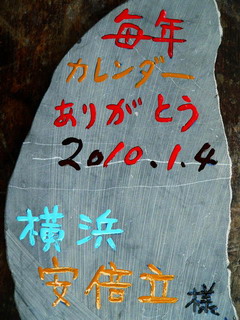 毎年
カレンダー
ありがとう
2010.1.4
横浜
安倍立様